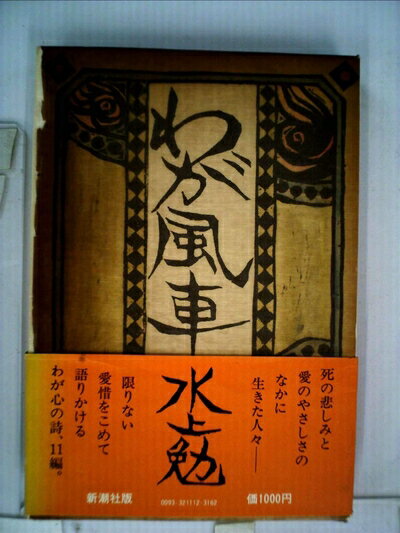 わが風車
水上勉
死の悲しみと
愛のやさしさの
なかに
生きた人々──
限りない
愛惜をこめて
語りかける
わが心の詩、11編。
新潮社版
0093-321112-3162
価1000円